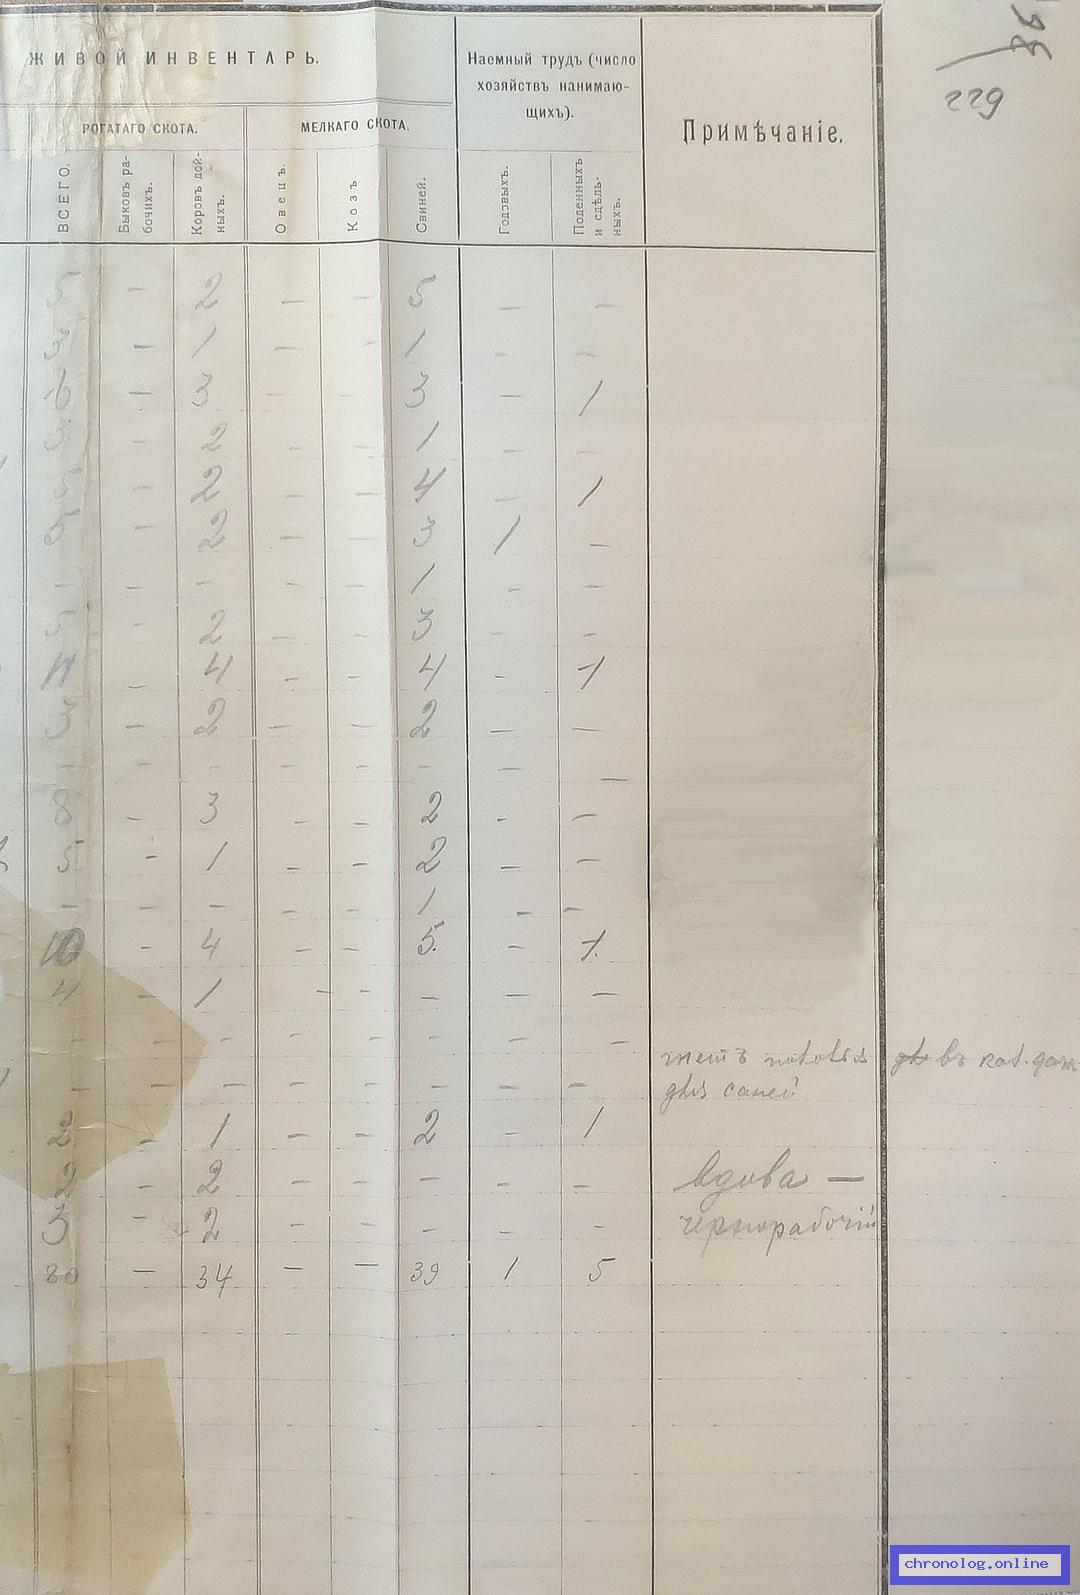 229
ЖИВОЙ ИНВЕНТАРЬ.
Наемный трудъ (число
хозяйствъ нанимаю-
щихъ).
Примѣчаніе.
РОГАТАГО СКОТА.
МЕЛКАГО СКОТА.
ВСЕГО.
Быковъ ра-
бочихъ.
Коровъ дой-
ныхъ.
Овецъ.
Козъ
Свиней.
Годовыхъ.
Поденныхъ
и сдѣль-
ныхъ.
5 – 2 – – 5 – –
3 – 1 – – 1 – –
6 – 3 – – 3 – 1
3 – 2 – – 1 – –
5 – 2 – – 4 – 1
– 2 – – 3 1 –
– – – – – 1 – –
5 – 2 – – 3 – –
11 – 4 – – 4 – 1
3 – 2 – – 2 – –
– – – – – – – –
8 – 3 – – 2 – –
5 – 1 – – 2 – –
– – – – – 1 – –
10 – 4 – – 5 – 1
4 – 1 – – – – –
– – – – – – – –
въ
– – – – – – – –
саней
2 – 1 – – 2 – 1
2 – 2 – – – – –
вдова –
3 – 2 – – – – –
чернорабочій
80 – 34 – – 39 1 5
chronolog.online